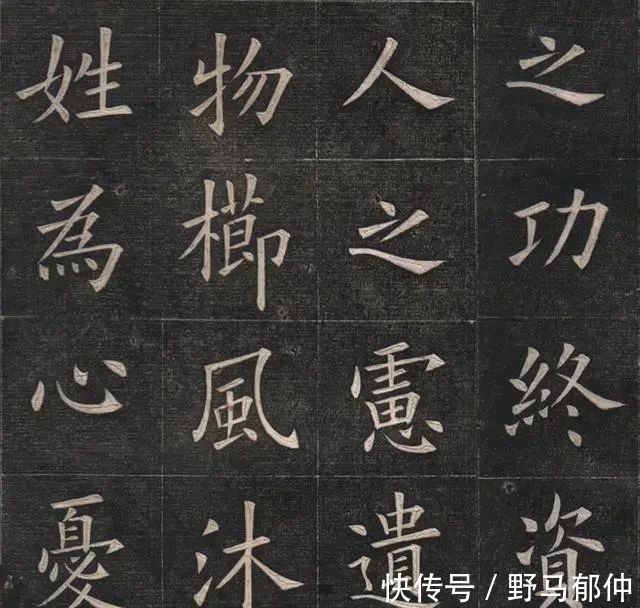 之功終資
人之慮遺
物櫛風沐
姓為心憂
快传号 / 野马郁仲